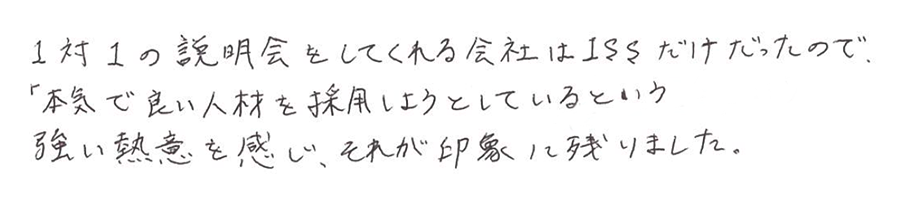 1対1の説明会をしてくれる会社はISSだけだったので、
「本気で良い人材を採用しようとしているという
強い熱意を感じ、それが印象に残りました。